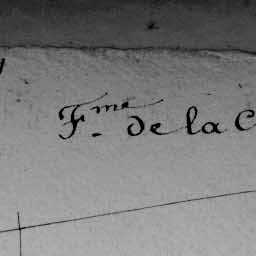 F.me de la C